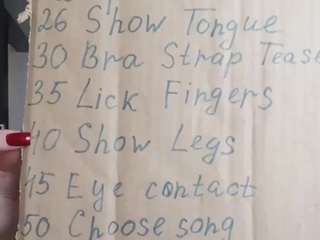 26 Show Tongue
30 Bra Strap Tease
35 Lick Fingers
40 Show Legs
45 Eye contact
50 Choose song